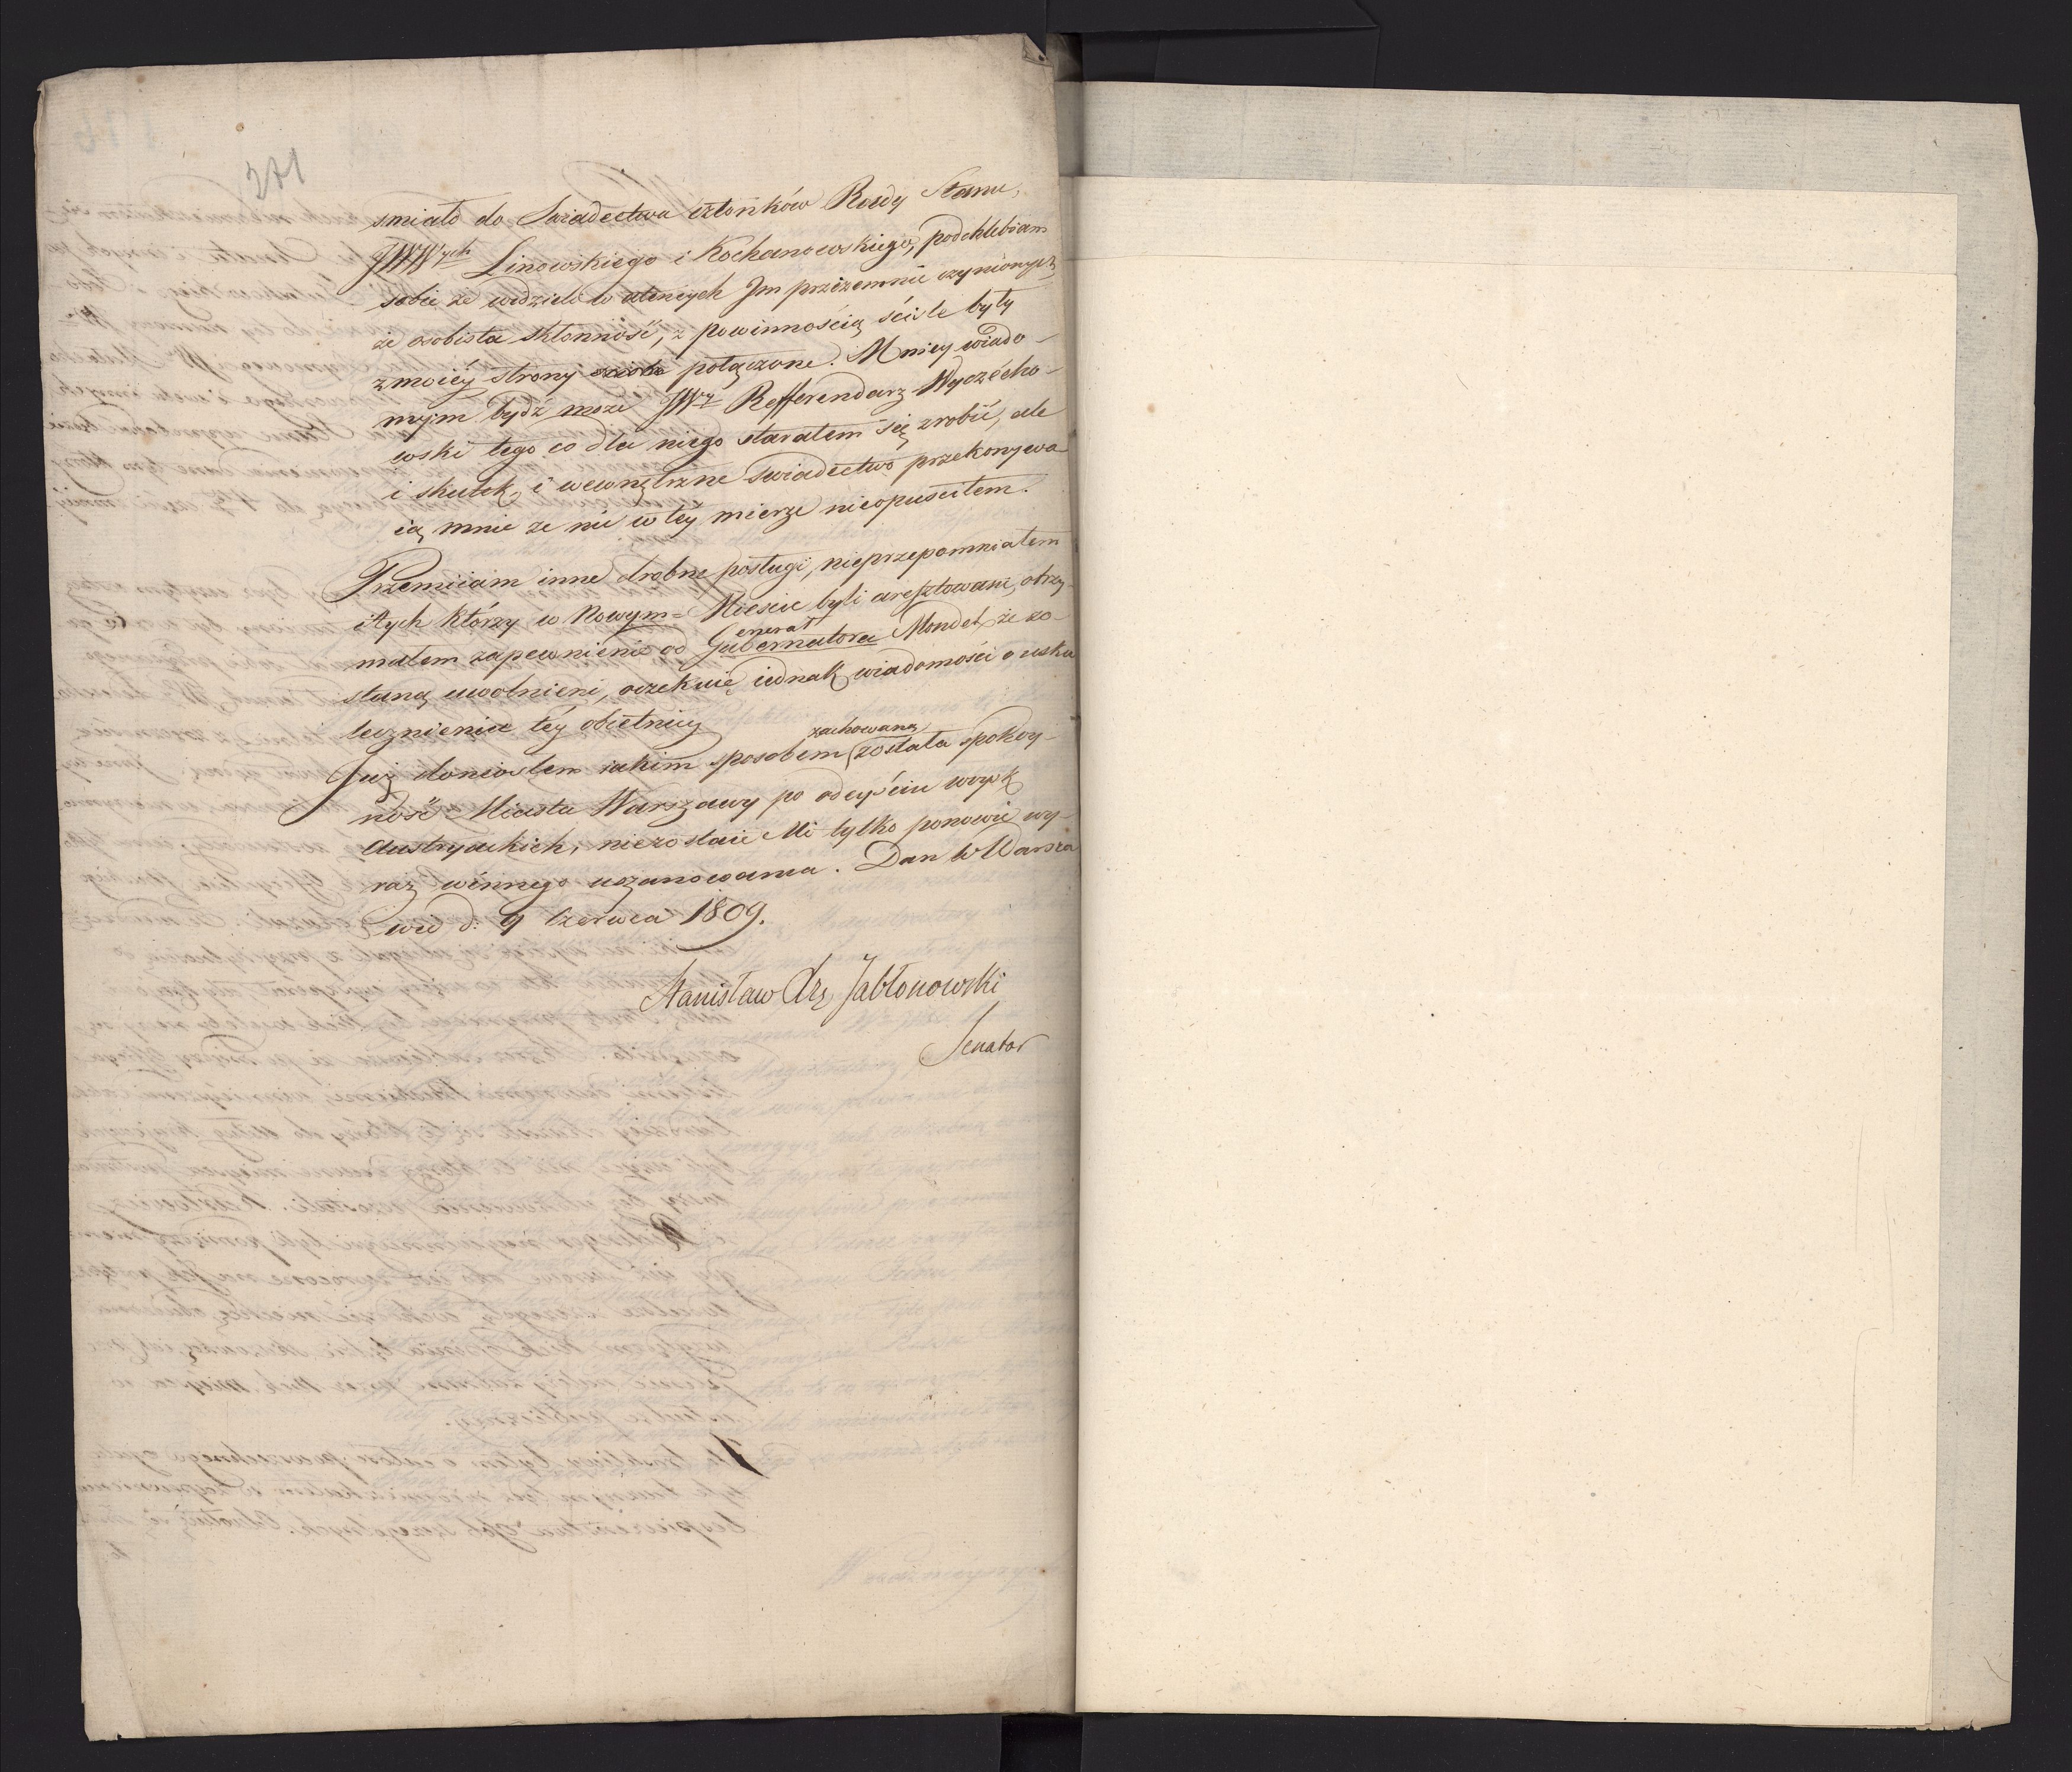 271
smiało do Swiadectwa członków Rady Stanu,
JWWych Linowskiego i Kochanowskiego, podchlebiam
sobie że widzieli w Im przezemnie czynionych
że osobista skłonność, z powinnością ściśle były
z moiéy strony połączone. Mniey wiado-
mym bydź może JWy Refferendarz Wyczécho-
wski tego co dla niego starałem się zrobić, ale
i skutek, i wewnętrzne swiadectwo przekonywa
ią mnie że nic w téy mierze nieopuściłem.
Przemiiam inne drobne posługi, nieprzepomniałem
i tych którzy w Nowym-Mieście byli aresztowani, otrzy-
małem zapewnienie od Generał Gubernatora Mondet że zo-
staną uwolnieni, oczekuię iednak wiadomości o usku
tecznieniu téy obietnicy
Już doniosłem iakim sposobem zachowaną została spokoy-
ność Miasta Warszawy po odeyściu woysk
Austryackich, niezostaie Mi tylko ponowić wy-
raz winnego uszanowania. Dan w Warsza
wie d: 9 Czerwca 1809.
Stanisław Jabłonowski
Senator